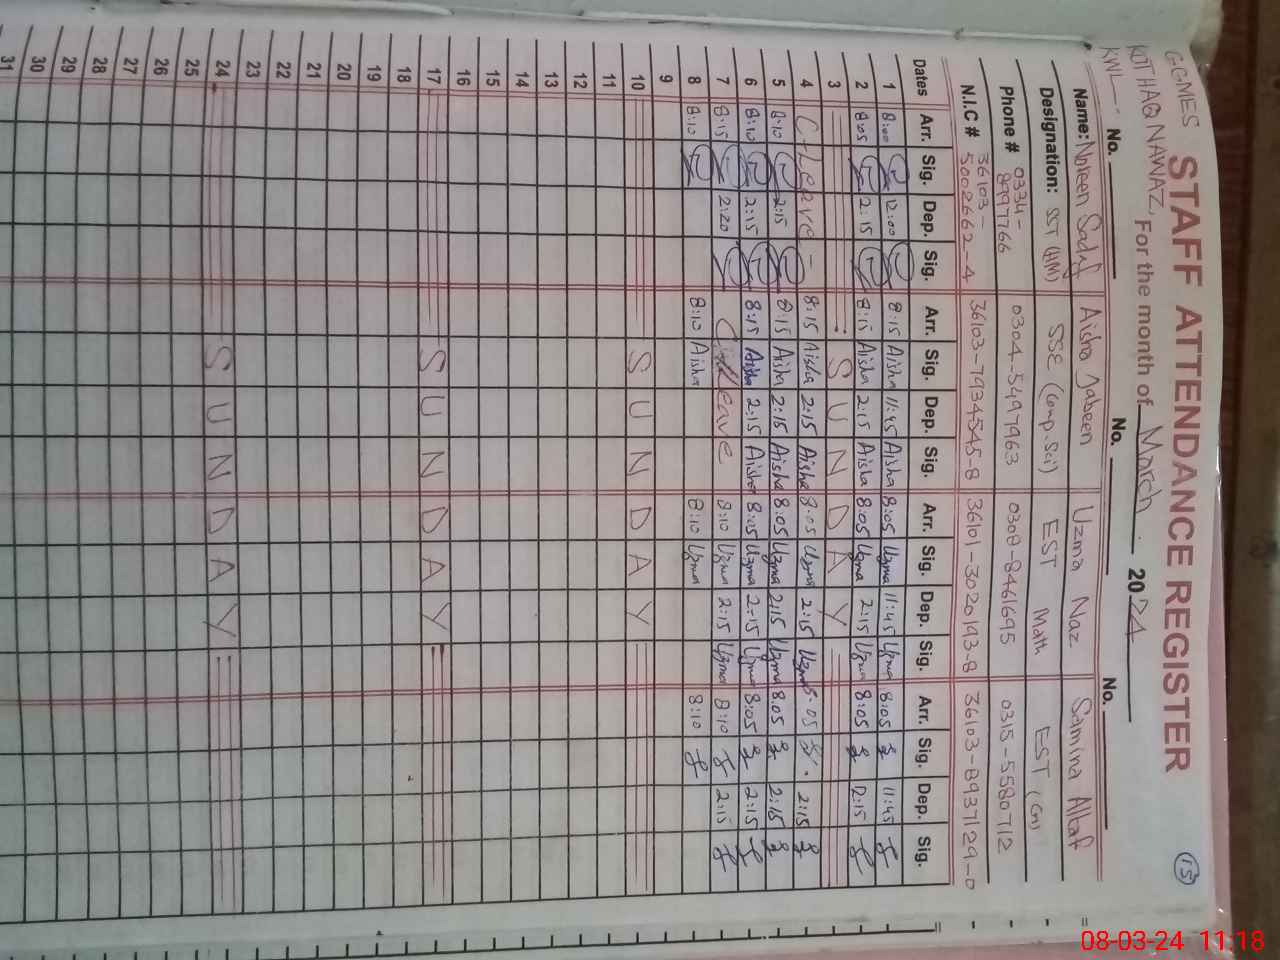 GGMES
KOT HAQ NAWAZ,
KWL
STAFF ATTENDANCE REGISTER
15
For the month of March 2024
No. No. No.
Name: Noreen Sadaf Aisha Jabeen Uzma Naz Samina Altaf
Designation: SST (HM) SSE (Comp.Sci) EST Math EST (Gn)
Phone # 0334-8997766 0304-5497963 0308-8461695 0315-5580712
N.I.C # 36103-5002662-4 36103-7934545-8 36101-3020193-8 36103-8937129-0
Dates Arr. Sig. Dep. Sig. Arr. Sig. Dep. Sig. Arr. Sig. Dep. Sig. Arr. Sig. Dep. Sig.
1 8:00 12:00 8:15 Aisha 11:45 Aisha 8:05 Uzma 11:45 Uzma 8:05 11:45
2 8:05 2:15 8:15 Aisha 2:15 Aisha 8:05 Uzma 2:15 Uzma 8:05 2:15
3 SUNDAY
4 C-Leave- 8:15 Aisha 2:15 Aisha 8:05 Uzma 2:15 Uzma 8:05 2:15
5 8:10 2:15 8:15 Aisha 2:15 Aisha 8:05 Uzma 2:15 Uzma 8:05 2:15
6 8:10 2:15 8:15 Aisha 2:15 Aisha 8:05 Uzma 2:15 Uzma 8:05 2:15
7 8:15 2:20 Leave 8:10 Uzma 2:15 Uzma 8:10 2:15
8 8:10 8:10 Aisha 8:10 Uzma 8:10
9
10 SUNDAY
11
12
13
14
15
16
17 SUNDAY
18
19
20
21
22
23
24 SUNDAY
25
26
27
28
29
30
31
08-03-24 11:18